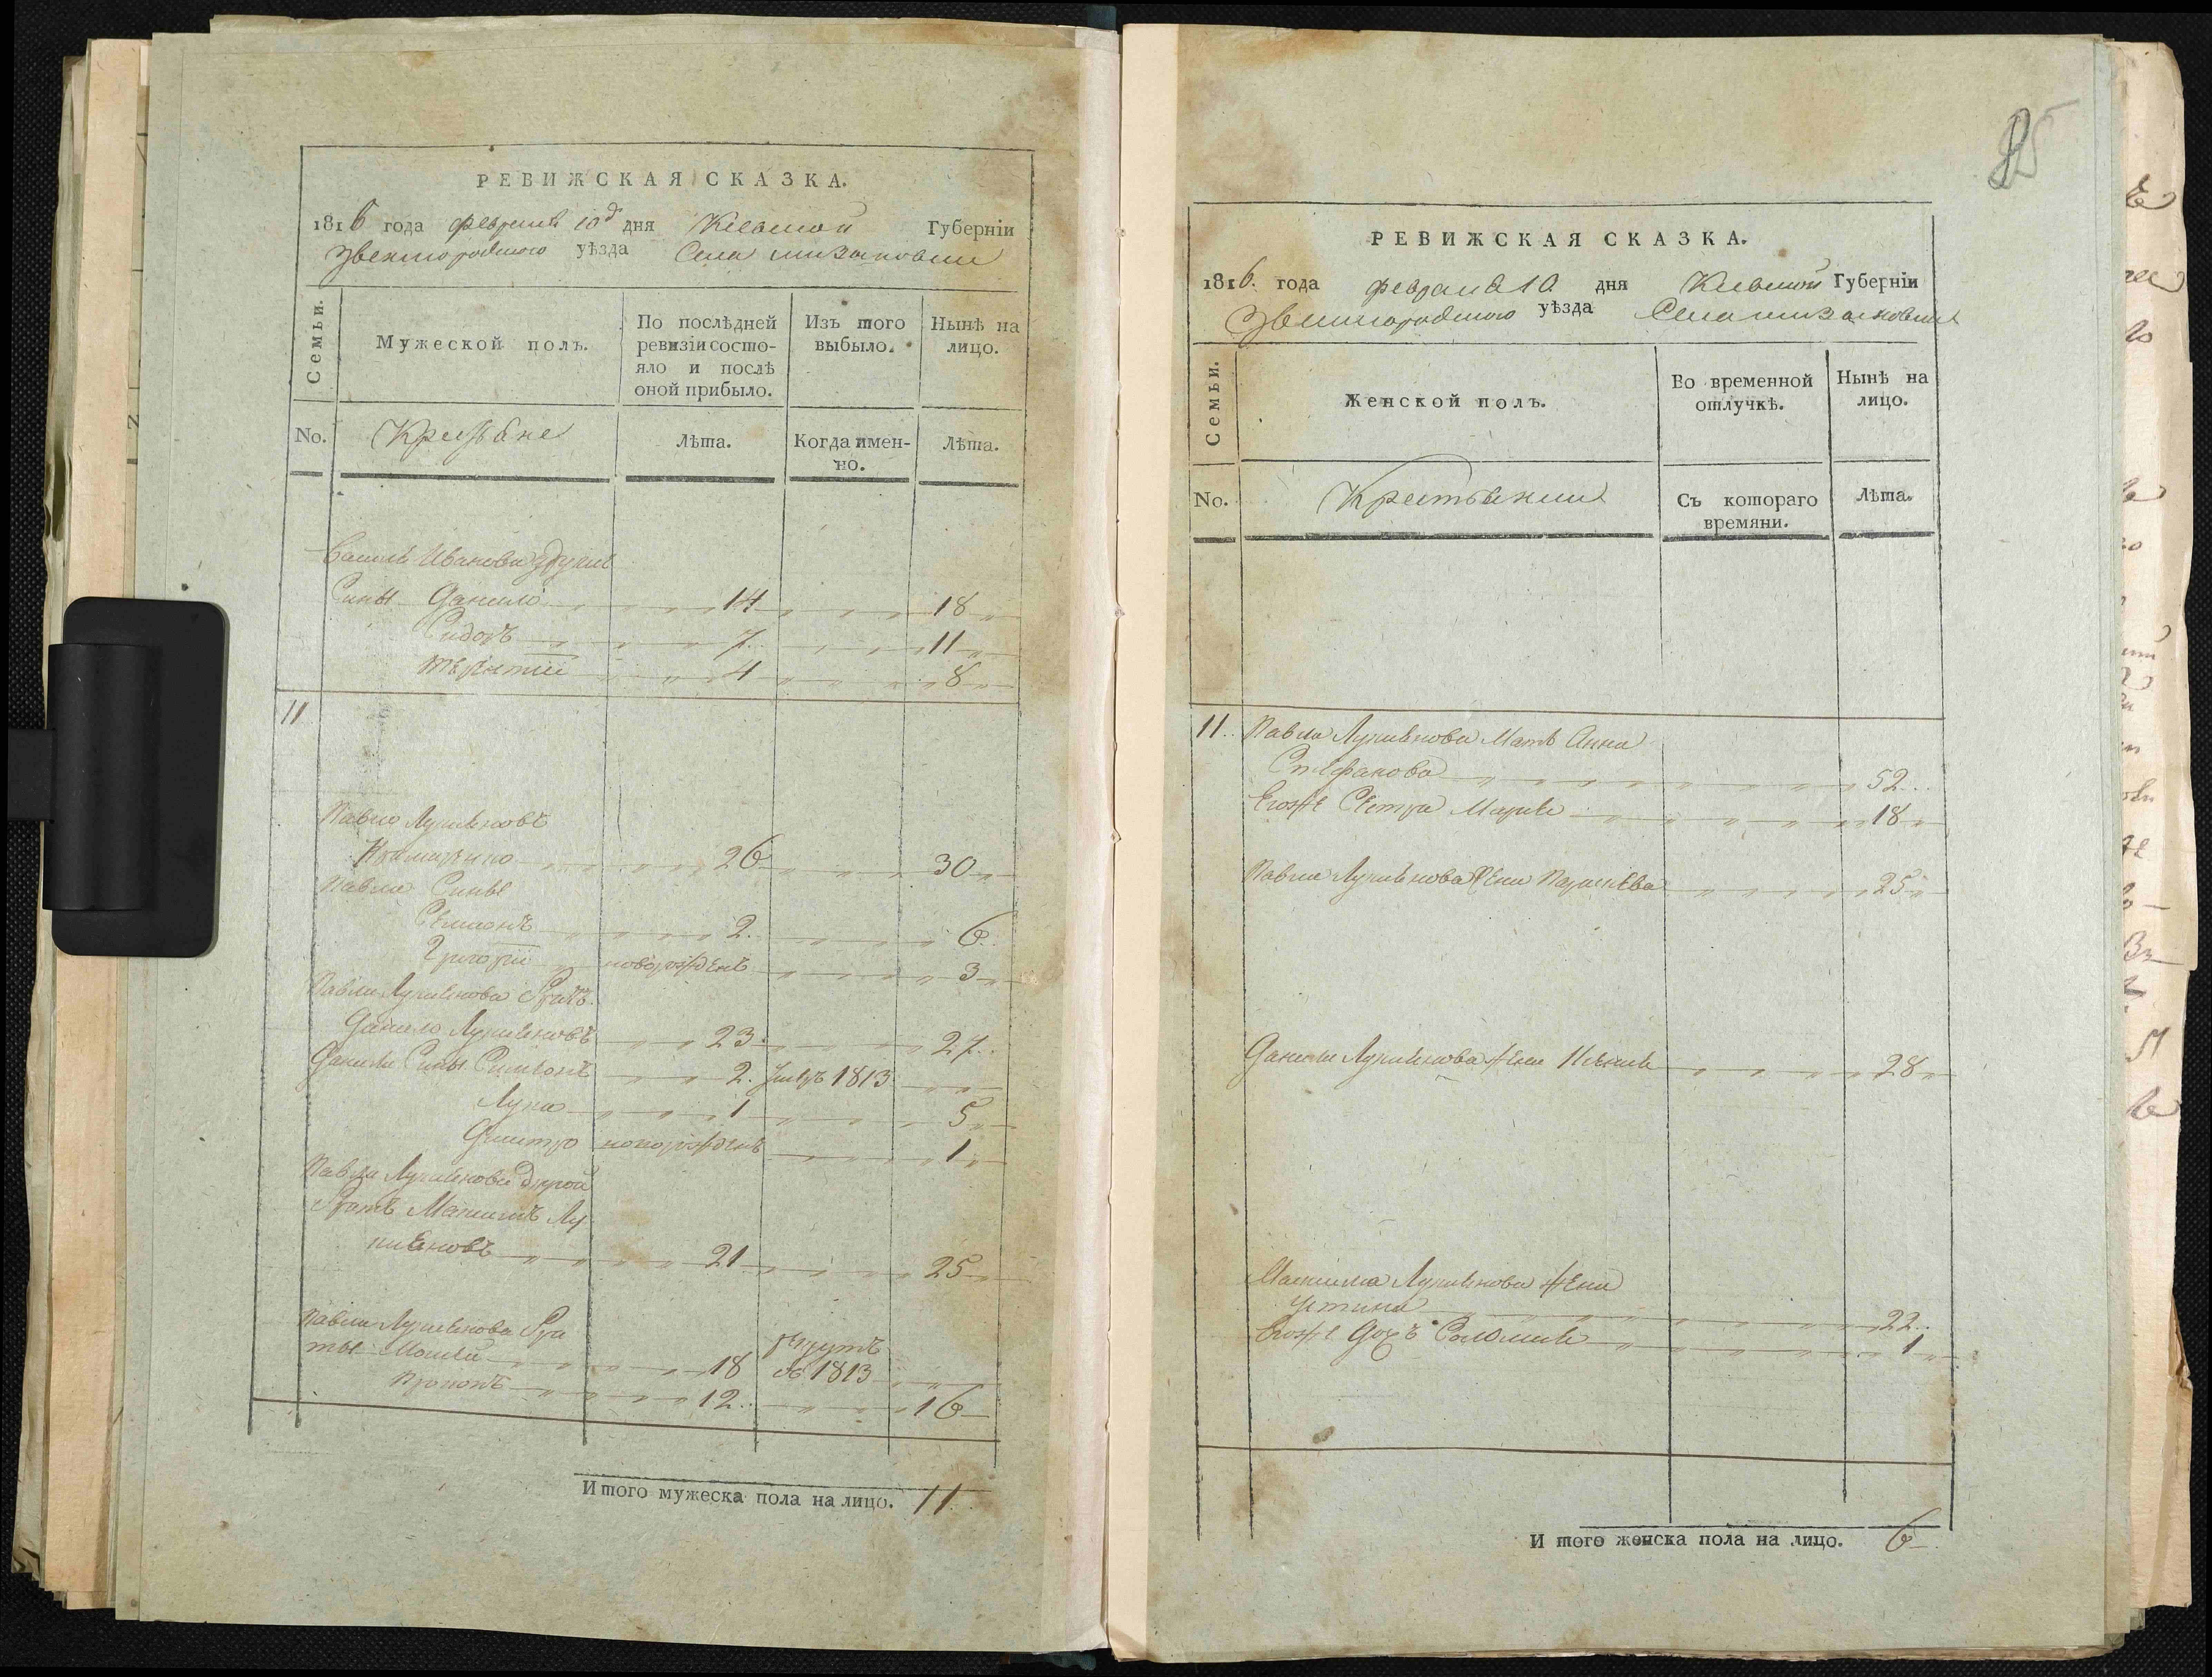 РЕВИЖСКАЯ СКАЗКА.
1816 года февраля 10д дня Киевской Губерніи
Звенигородского уѣзда Села
Семьи.
Мужеской полъ.
По послѣдней ревизіи состояло и послѣ оной прибыло.
Изъ того выбыло.
Нынѣ на лицо.
No.
Крестьяне
Лѣта.
Когда именно.
Лѣта.
Василя Иванова другие
Сины Данило 14 18
Сидоръ 7 11
Терентий 4 8
11
Павло Лукиановъ
26 30
Павла Сины
Семионъ 2. 6
Григорий новорожденъ 3
Павла Лукианова братъ
Данило Лукиановъ 23 27
Данили Сины Симионъ 2. умеръ 1813
Лука 1 5
Дмитро новорожденъ 1
Павла Лукианова другой
братъ Максимъ Лу
киановъ 21 25
Павла Лукианова бра
ты Мойсей 18 рекрутъ въ 1813
Прокопъ 12 16
Итого мужеска пола на лицо. 11
85
РЕВИЖСКАЯ СКАЗКА.
1816. года февраля 10 дня Киевской Губерніи
Звенигородского уѣзда Села
Семьи.
Женской полъ.
Во временной отлучкѣ.
Нынѣ на лицо.
No.
Крестьянки
Съ котораго времяни.
Лѣта.
11. Павла Лукианова Мать Анна
Стефанова 52
Егоже Сестра Мария 18
Павла Лукианова жена Параскева 25
Данили Лукианова жена Ксения 28
Максима Лукианова жена
Устина 22
Егоже Дочъ Соломия 1
Итого женска пола на лицо. 6